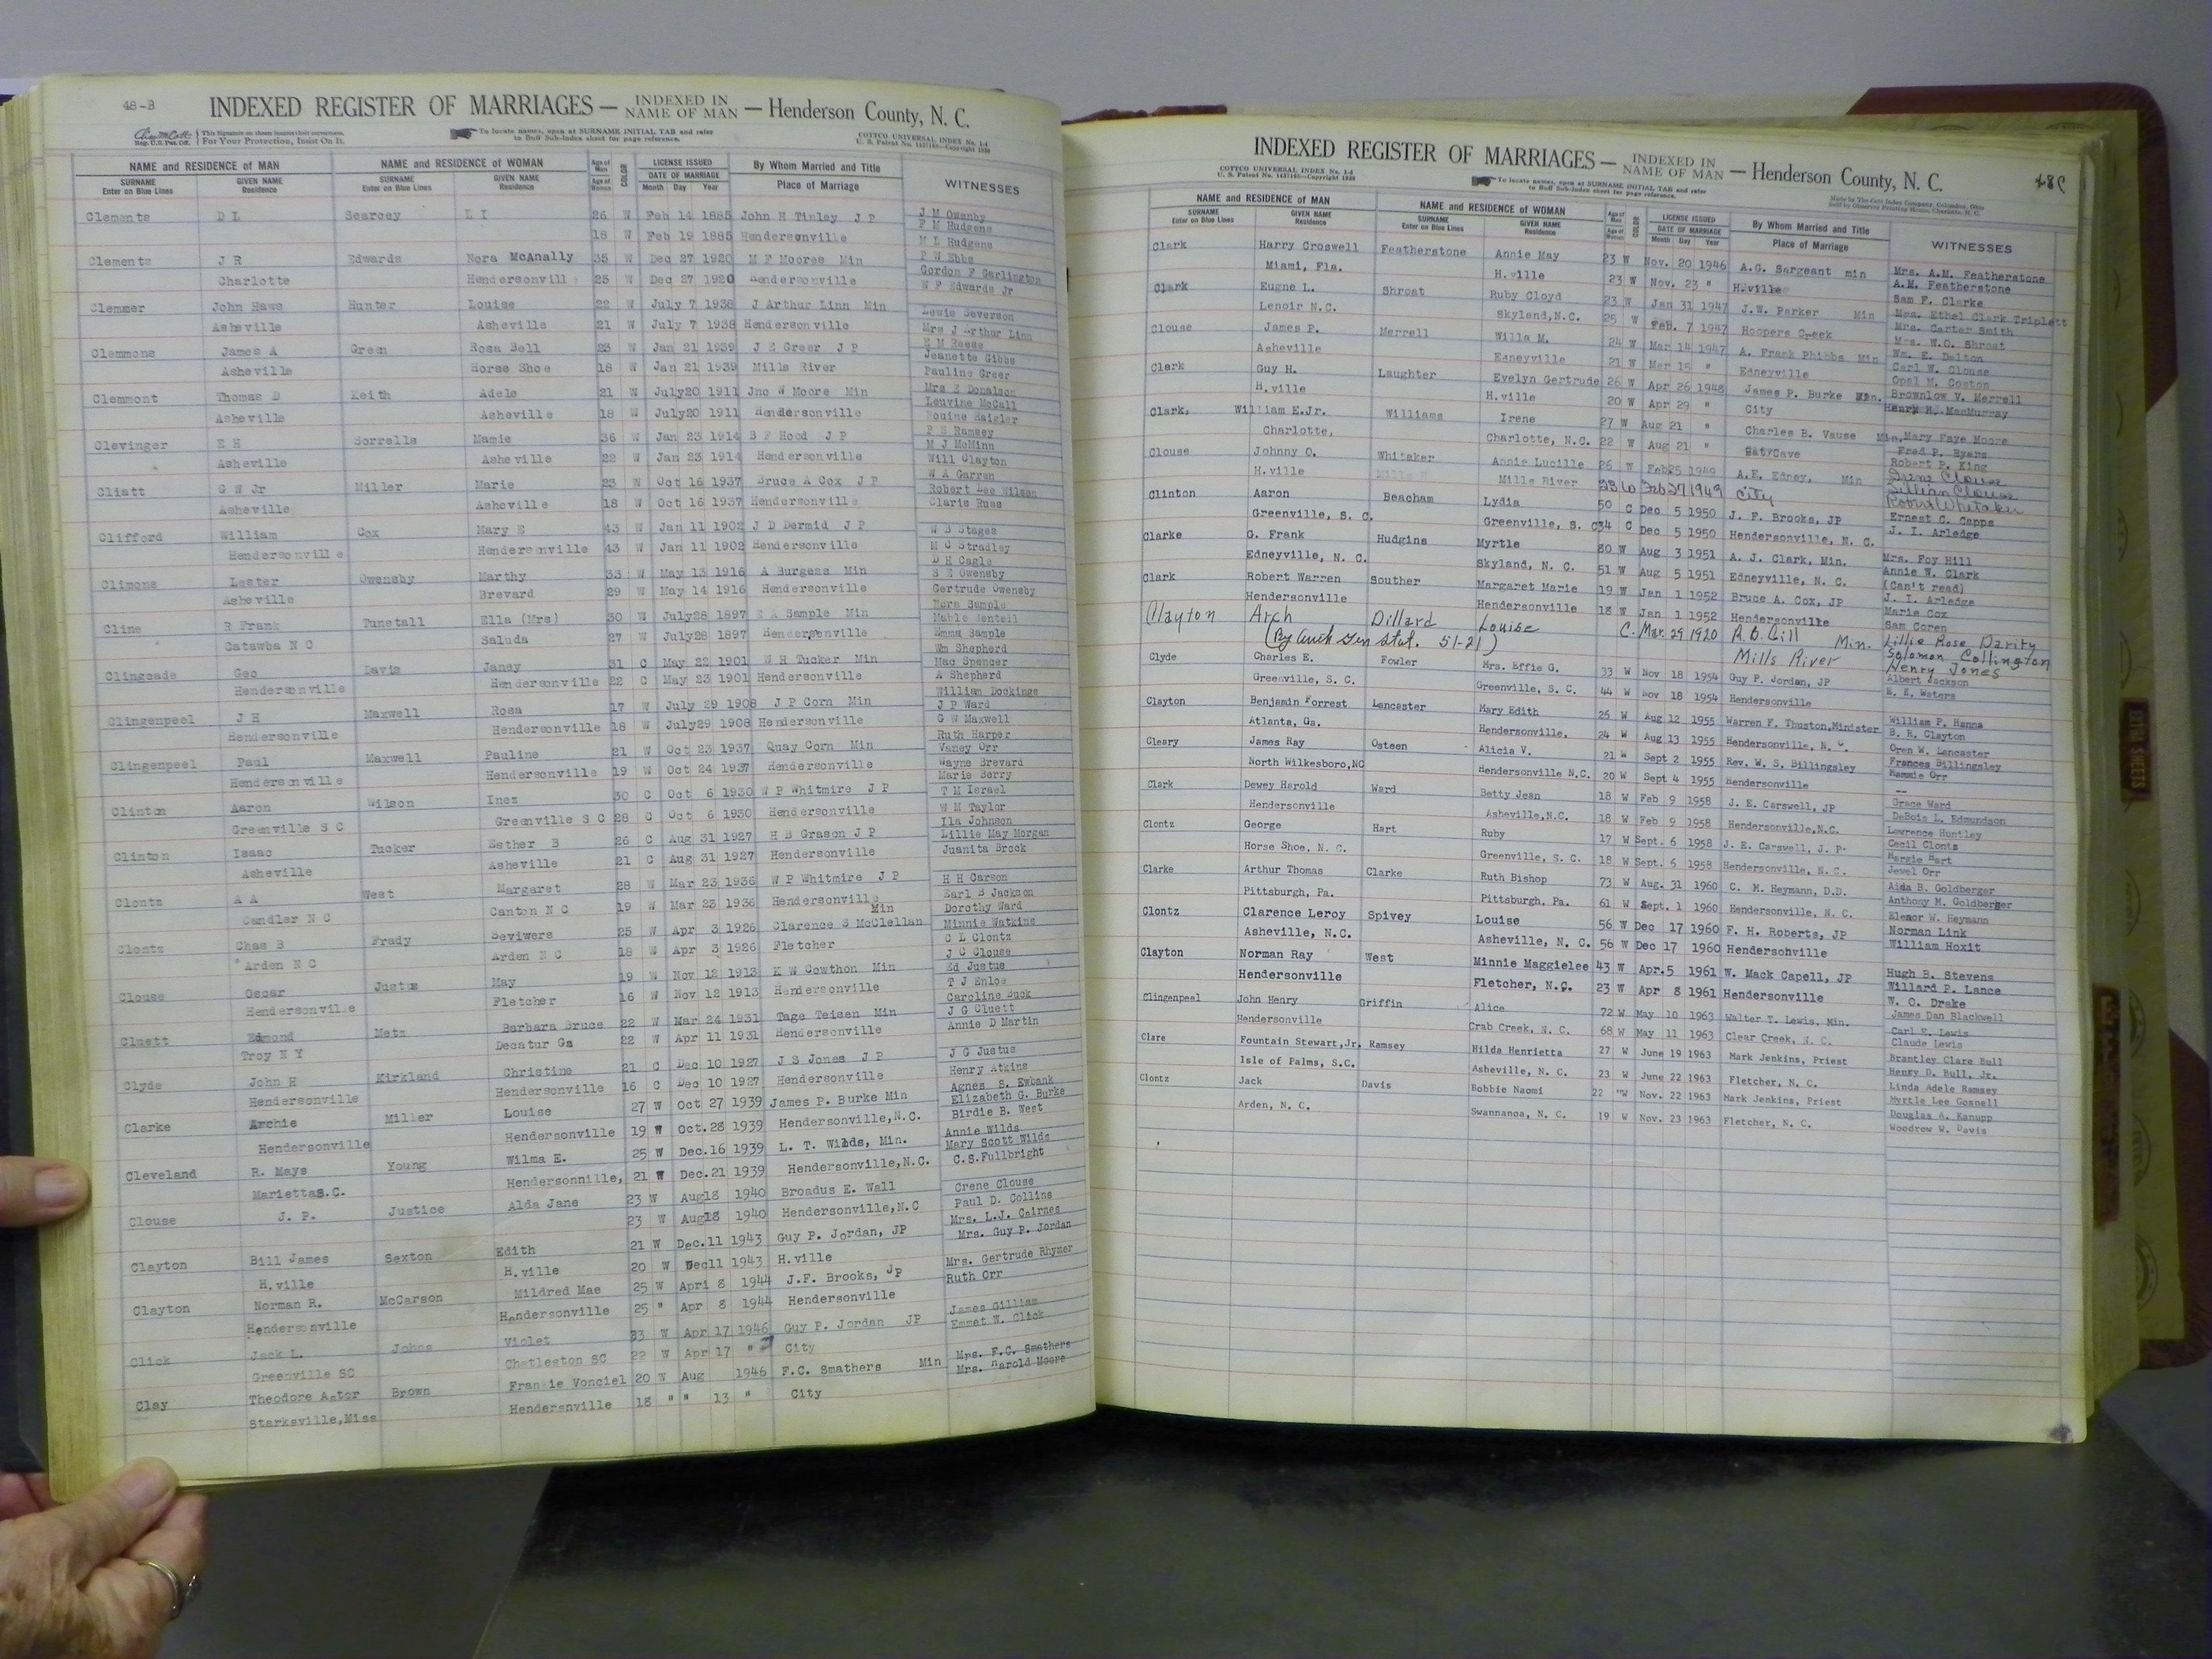 48-B
INDEXED REGISTER OF MARRIAGES — INDEXED IN NAME OF MAN — Henderson County, N. C.
This Signature on sheets insures their correctness. For Your Protection, Insist On It.
To locate names, open at SURNAME INITIAL TAB and refer to Buff Sub-Index sheet for page reference.
COTTCO UNIVERSAL INDEX No. 1-4
NAME and RESIDENCE OF MAN NAME and RESIDENCE OF WOMAN Age of Man COLOR LICENSE ISSUED By Whom Married and Title WITNESSES
SURNAME Enter on Blue Lines GIVEN NAME Residence SURNAME Enter on Blue Lines GIVEN NAME Residence Age of Woman DATE OF MARRIAGE Month Day Year Place of Marriage
Clements D L Searcey L I 26 W Feb 14 1885 John H Tinley J P J M Owenby
P M Hudgens
18 W Feb 19 1885 Hendersonville M L Hudgens
Clements J R Edwards Nora McAnally 35 W Dec 27 1920 M F Moores Min P W Ebbs
Charlotte Hendersonvill 25 W Dec 27 1920 Hendersonville Gordon F Garlington
W F Edwards Jr
Clemmer John Hawe Hunter Louise 22 W July 7 1938 J Arthur Linn Min Lewis Severson
Asheville Asheville 21 W July 7 1938 Hendersonville Mrs J Arthur Linn
Clemmons James A Green Rosa Bell 23 W Jan 21 1939 J E Greer J P E M Reese
Jeanette Gibbs
Asheville Horse Shoe 18 W Jan 21 1939 Mills River Pauline Greer
Clemmont Thomas D Keith Adele 21 W July20 1911 Jno W Moore Min Mrs E Donalson
Louvine McCall
Asheville Asheville 18 W July20 1911 Hendersonville
Clevinger E H Sorrells Mamie 36 W Jan 23 1914 B F Hood J P P S Ramsey
M J McMinn
Asheville Asheville 22 W Jan 23 1914 Hendersonville Will Clayton
Cliatt G W Jr Miller Marie 23 W Oct 16 1937 Bruce A Cox J P W A Garren
Robert Lee Wilson
Asheville Asheville 18 W Oct 16 1937 Hendersonville Claris Russ
Clifford William Cox Mary E 43 W Jan 11 1902 J D Dermid J P W B Stages
Hendersonville Hendersonville 43 W Jan 11 1902 Hendersonville M C Stradley
D H Cagle
Climons Lester Owensby Marthy 33 W May 13 1916 A Burgess Min S E Owensby
Asheville Brevard 29 W May 14 1916 Hendersonville Gertrude Owensby
Nora Sample
Cline R Frank Tunstall Ella (Mrs) 30 W July28 1897 E A Sample Min Mable Jentell
Catawba N C Saluda 27 W July28 1897 Hendersonville Emma Sample
Wm Shepherd
Clingcade Geo Davis Janey 31 C May 22 1901 W H Tucker Min Mac Spencer
Hendersonville Hendersonville 22 C May 23 1901 Hendersonville A Shepherd
Clingenpeel J H Maxwell Rosa 17 W July 29 1908 J P Corn Min William Dockings
J P Ward
Hendersonville Hendersonville 18 W July29 1908 Hendersonville G W Maxwell
Clingenpeel Paul Maxwell Pauline 21 W Oct 23 1937 Quay Corn Min Ruth Harper
Vaney Orr
Hendersonville Hendersonville 19 W Oct 24 1937 Hendersonville Wayne Brevard
Marie Berry
Clinton Aaron Wilson Inez 30 C Oct 6 1930 W P Whitmire J P T M Israel
Greenville S C Greenville S C 28 C Oct 6 1930 Hendersonville W M Taylor
Ila Johnson
Clinton Isaac Tucker Esther B 26 C Aug 31 1927 H B Grason J P Lillie May Morgan
Asheville Asheville 21 C Aug 31 1927 Hendersonville Juanita Brock
Clontz A A West Margaret 28 W Mar 23 1936 W P Whitmire J P H H Carson
Candler N C Canton N C 19 W Mar 23 1936 Hendersonville Earl B Jackson
Dorothy Ward
Clontz Chas B Frady Beviwers 25 W Apr 3 1926 Clarence S McClellan Min Minnie Watkins
Arden N C Arden N C 18 W Apr 3 1926 Fletcher C L Clontz
J C Clouse
Clouse Oscar Justus May 19 W Nov 12 1913 K W Cowthon Min Ed Justus
Hendersonville Fletcher 16 W Nov 12 1913 Hendersonville T J Enloe
Caroline Buck
Cluett Edmond Metz Barbara Bruce 22 W Mar 24 1931 Tage Teisen Min J G Cluett
Troy N Y Decatur Ga 22 W Apr 11 1931 Hendersonville Annie D Martin
Clyde John H Kirkland Christine 21 C Dec 10 1927 J S Jones J P J G Justus
Hendersonville Hendersonville 16 C Dec 10 1927 Hendersonville Henry Atkins
Clarke Archie Miller Louise 27 W Oct 27 1939 James P. Burke Min Agnes S. Ewbank
Elizabeth G. Burke
Hendersonville Hendersonville 19 W Oct.28 1939 Hendersonville,N.C. Birdie B. West
Cleveland R. Mays Young Wilma E. 25 W Dec.16 1939 L. T. Wilds, Min. Annie Wilds
Mary Scott Wilds
MariettaS.C. Hendersonnille, 21 W Dec.21 1939 Hendersonville,N.C. C.S.Fullbright
Clouse J. P. Justice Alda Jane 23 W Aug18 1940 Broadus E. Wall Crene Clouse
23 W Aug18 1940 Hendersonville,N.C Paul D. Collins
Clayton Bill James Sexton Edith 21 W Dec.11 1943 Guy P. Jordan, JP Mrs. L.J. Cairnes
Mrs. Guy P. Jordan
H.ville H.ville 20 W Dec11 1943 H.ville
Clayton Norman R. McCarson Mildred Mae 25 W Apri 8 1944 J.F. Brooks, Jp Mrs. Gertrude Rhymer
Ruth Orr
Hendersonville Hendersonville 25 " Apr 8 1944 Hendersonville
Click Jack L. Johns Violet 33 W Apr 17 1946 Guy P. Jordan JP James Gilliam
Emmet W. Click
Greenville SC Chatleston SC 22 W Apr 17 " City
Clay Theodore Astor Brown Frankie Vonciel 20 W Aug 1946 F.C. Smathers Min Mrs. F.C. Smathers
Mrs. Harold Moore
Starksville,Miss Hendersnville 18 " " 13 " City
48C
INDEXED REGISTER OF MARRIAGES — INDEXED IN NAME OF MAN — Henderson County, N. C.
COTTCO UNIVERSAL INDEX No. 1-4
To locate names, open at SURNAME INITIAL TAB and refer to Buff Sub-Index sheet for page reference.
NAME and RESIDENCE OF MAN NAME and RESIDENCE OF WOMAN Age of Man COLOR LICENSE ISSUED By Whom Married and Title WITNESSES
SURNAME Enter on Blue Lines GIVEN NAME Residence SURNAME Enter on Blue Lines GIVEN NAME Residence Age of Woman DATE OF MARRIAGE Month Day Year Place of Marriage
Clark Harry Croswell Featherstone Annie May 23 W Nov. 20 1946 A.G. Sargeant min Mrs. A.M. Featherstone
Miami, Fla. H.ville 23 W Nov. 23 " H.ville A.M. Featherstone
Clark Eugne L. Shroat Ruby Cloyd 23 W Jan 31 1947 J.W. Parker Min Sam F. Clarke
Mrs. Ethel Clark Triplett
Lenoir N.C. Skyland,N.C. 25 W Feb. 7 1947 Hoopers Creek Mrs. Carter Smith
Mrs. W.O. Shroat
Clouse James P. Merrell Willa M. 24 W Mar 14 1947 A. Frank Phibbs Min Wm. E. Dalton
Asheville Edneyville 21 W Mar 15 " Edneyville Carl W. Clouse
Opal M. Coston
Clark Guy H. Laughter Evelyn Gertrude 26 W Apr 26 1948 James P. Burke Min. Brownlow V. Merrell
H.ville H.ville 20 W Apr 29 " City Henry H. MacMurray
Clark, William E.Jr. Williams Irene 27 W Aug 21 " Charles B. Vause Min. Mary Faye Moore
Charlotte, Charlotte, N.C. 22 W Aug 21 " BatyCave Fred P. Byers
Robert P. King
Clouse Johnny O. Whitaker Annie Lucille 26 W Feb25 1949 A.E. Edney, Min Irene Clouse
H.ville Mills Mills River 23 W Feb 27 1949 City Lillian Clouse
Robert Whitaker
Clinton Aaron Beacham Lydia 50 C Dec 5 1950 J. F. Brooks, JP Ernest C. Capps
Greenville, S. C. Greenville, S. C 34 C Dec 5 1950 Hendersonville, N. C. J. I. Arledge
Clarke G. Frank Hudgins Myrtle 80 W Aug 3 1951 A. J. Clark, Min. Mrs. Foy Hill
Edneyville, N. C. Skyland, N. C. 51 W Aug 5 1951 Edneyville, N. C. Annie W. Clark
(Can't read)
Clark Robert Warren Souther Margaret Marie 19 W Jan 1 1952 Bruce A. Cox, JP J. I. Arledge
Hendersonville Hendersonville 18 W Jan 1 1952 Hendersonville Marie Cox
Sam Coren
Clayton Arch Dillard Louise C. Mar. 29 1920 A.B. Gill Min. Lillie Rose Darity
(By Auth Gen Stat. 51-21) Mills River Solomon Collington
Henry Jones
Clyde Charles E. Fowler Mrs. Effie G. 33 W Nov 18 1954 Guy P. Jordan, JP Albert Jackson
Greenville, S. C. Greenville, S. C. 44 W Nov 18 1954 Hendersonville E. E. Waters
Clayton Benjamin Forrest Lancaster Mary Edith 26 W Aug 12 1955 Warren F. Thuston,Minister William P. Hanna
Atlanta, Ga. Hendersonville, 24 W Aug 13 1955 Hendersonville, N. C. B. R. Clayton
Oren W. Lancaster
Cleary James Ray Osteen Alicia V. 21 W Sept 2 1955 Rev. W. S. Billingsley Frances Billingsley
North Wilkesboro,NC Hendersonville N.C. 20 W Sept 4 1955 Hendersonville Mammie Orr
--
Clark Dewey Harold Ward Betty Jean 18 W Feb 9 1958 J. E. Carswell, JP Grace Ward
Hendersonville Asheville,N.C. 18 W Feb 9 1958 Hendersonville,N.C. DeBois L. Edmundson
Lawrence Huntley
Clontz George Hart Ruby 17 W Sept. 6 1958 J. E. Carswell, J. P. Cecil Clontz
Horse Shoe, N. C. Greenville, S. C. 18 W Sept. 6 1958 Hendersonville, N. C. Margie Hart
Jewel Orr
Clarke Arthur Thomas Clarke Ruth Bishop 73 W Aug. 31 1960 C. M. Heymann, D.D. Aida B. Goldberger
Pittsburgh, Pa. Pittsburgh, Pa. 61 W Sept. 1 1960 Hendersonville, N. C. Anthony M. Goldberger
Eleanor W. Heymann
Clontz Clarence Leroy Spivey Louise 56 W Dec 17 1960 F. H. Roberts, JP Norman Link
Asheville, N.C. Asheville, N. C. 56 W Dec 17 1960 Hendersohville William Hoxit
Clayton Norman Ray West Minnie Maggielee 43 W Apr.5 1961 W. Mack Capell, JP Hugh B. Stevens
Hendersonville Fletcher, N.C. 23 W Apr 8 1961 Hendersonville Willard P. Lance
W. O. Drake
Clingenpeel John Henry Griffin Alice 72 W May 10 1963 Walter T. Lewis, Min. James Dan Blackwell
Hendersonville Crab Creek, N. C. 68 W May 11 1963 Clear Creek, N. C. Carl E. Lewis
Claude Lewis
Clare Fountain Stewart,Jr. Ramsey Hilda Henrietta 27 W June 19 1963 Mark Jenkins, Priest Brantley Clare Bull
Isle of Palms, S.C. Asheville, N. C. 23 W June 22 1963 Fletcher, N. C. Henry D. Bull, Jr.
Linda Adele Ramsey
Clontz Jack Davis Bobbie Naomi 22 "W Nov. 22 1963 Mark Jenkins, Priest Myrtle Lee Gosnell
Arden, N. C. Swannanoa, N. C. 19 W Nov. 23 1963 Fletcher, N. C. Douglas A. Kanupp
Woodrow W. Davis
EXTRA SHEETS